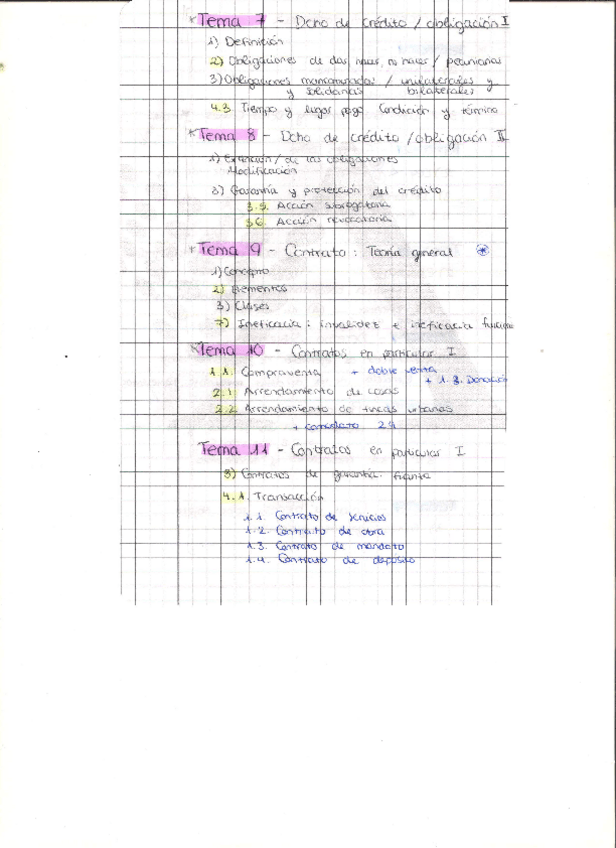 * Tema 7 - Dcho de crédito / obligación I
1) Definición
2) Obligaciones de dar, hacer, no hacer / pecuniarias
3) Obligaciones mancomunadas / unilaterales y
y solidarias bilaterales
4.3 Tiempo y lugar pago Condición y término
* Tema 8 - Dcho de crédito / obligación II
1) Extinción / de las obligaciones
Modificación
3) Garantía y protección del crédito
3.5. Acción subrogatoria
3.6. Acción revocatoria
* Tema 9 - Contrato: Teoría general *
1) Concepto
2) Elementos
3) Clases
7) Ineficacia: invalidez e ineficacia
* Tema 10 - Contratos en particular I
1.1. Compraventa + doble venta
+ 1.3. Donación
2.1 Arrendamiento de cosas
2.2 Arrendamiento de fincas urbanas
+ comodato
Tema 11 - Contratos en particular I
3) Contratos de garantía: fianza
4.1. Transacción
1.1. Contrato de servicios
1.2. Contrato de obra
1.3. Contrato de mandato
1.4. Contrato de depósito